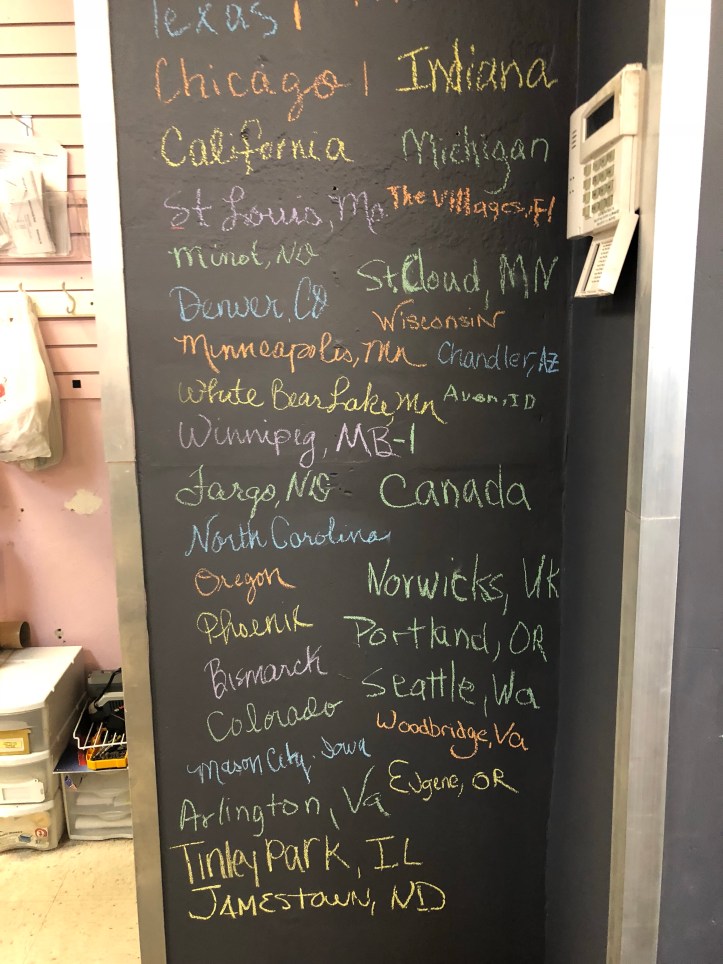 Texas |
Chicago | Indiana
California Michigan
St Louis, Mo The Villages, Fl
Minot, ND St. Cloud, MN
Denver, CO Wisconsin
Minneapolis, MN Chandler, AZ
White Bear Lake, Mn Avon, ID
Winnipeg, MB-1
Fargo, ND Canada
North Carolina
Oregon Norwicks, UK
Phoenix Portland, OR
Bismarck Seattle, Wa
Colorado Woodbridge, Va
Mason City, Iowa Eugene, OR
Arlington, Va
Tinley Park, IL
Jamestown, ND